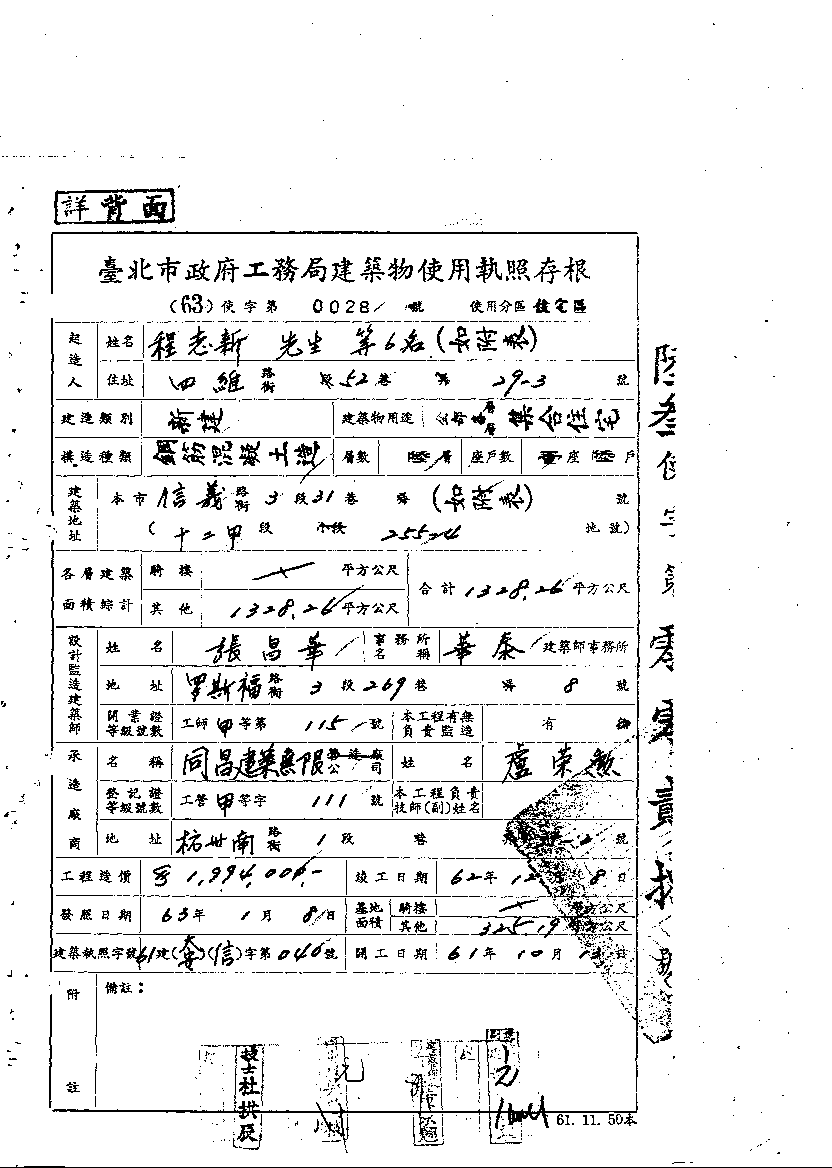 詳背面
臺北市政府工務局建築物使用執照存根
(63)使字第 0028 號 使用分區 住宅區
起造人 姓名 程志新 先生 等6名(如附表)
住址 四維 路街 段52巷 弄 29-3 號
建造類別 新建 建築物用途 全部 集合住宅
構造種類 鋼筋混凝土造 層數 層 座戶數 座 戶
建築地址 本市 信義 路街 3段31巷 弄 (如附表) 號
(十二甲段 小段 255-24 地號)
各層建築面積綜計 騎樓 平方公尺 合計 1328.26 平方公尺
其他 1328.26 平方公尺
設計監造建築師 姓名 張昌華 事務所名稱 華泰 建築師事務所
地址 羅斯福 路街 3段269巷 弄 8 號
開業證等級號數 工師甲等第 115 號 本工程有無負責監造 有
承造廠商 名稱 同昌建築無限公司 營造廠 姓名 盧榮
登記證等級號數 工營甲等字 111 號 本工程負責技師(副)姓名
地址 杭州南 路街 1段 巷 號
工程造價 1,994,000.- 竣工日期 62年12月8日
發照日期 63年1月8日 基地面積 騎樓 平方公尺
其他 325.19 平方公尺
建築執照字號 61建(大安)(信)字第040號 開工日期 61年10月13日
附註 備註:
技士杜拱辰
61. 11. 50本